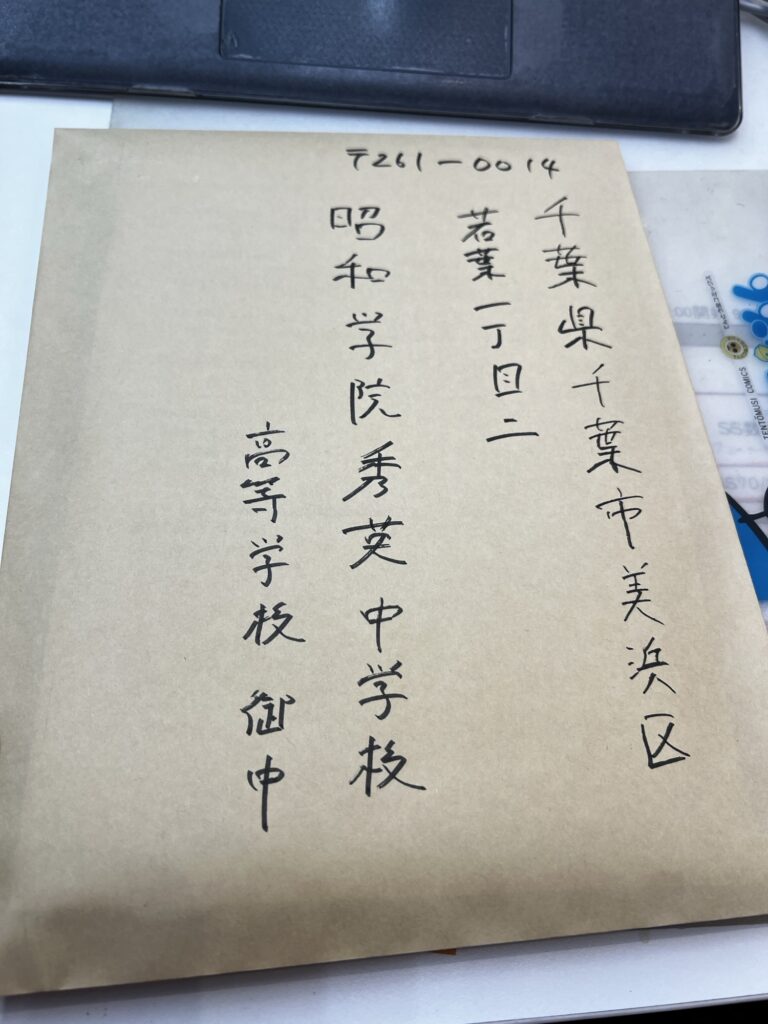 〒261-0014
千葉県千葉市美浜区
若葉一丁目二
昭和学院秀英中学校
高等学校 御中
TENTOMUSI COMICS